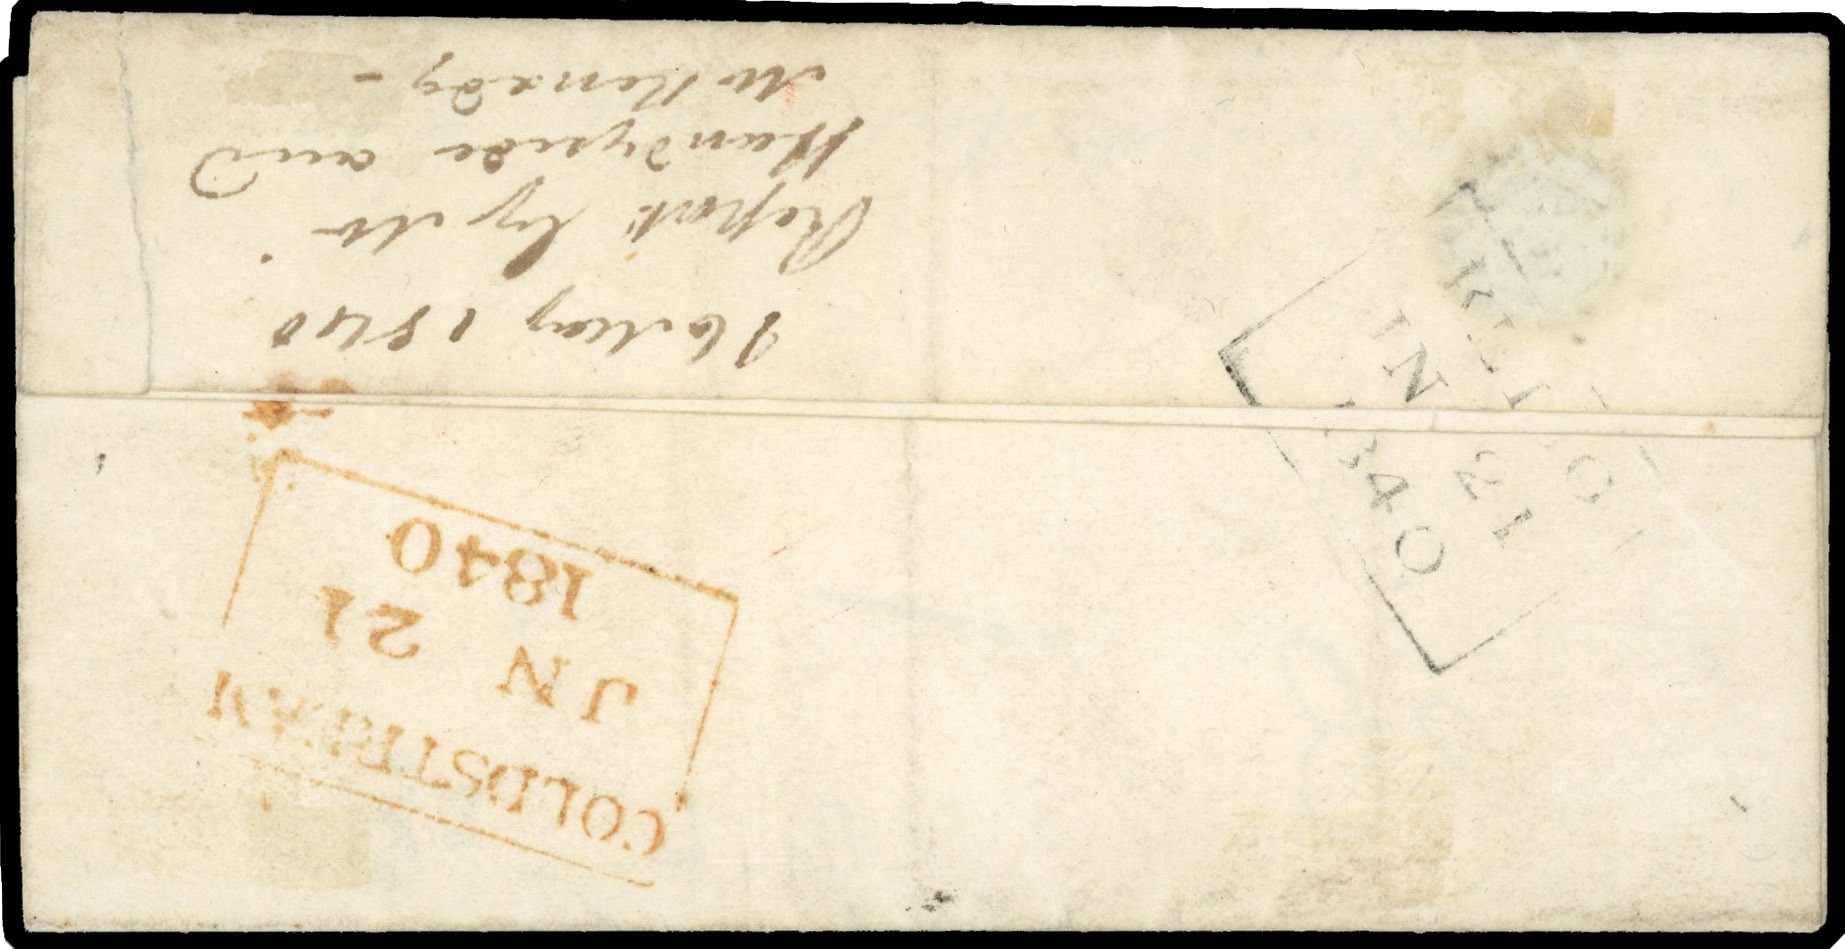 16 May 1840
Report by Mr
Handyside and
Mr Kenedy -
COLDSTREAM
JN 21
1840
KELSO
JN 21
1840